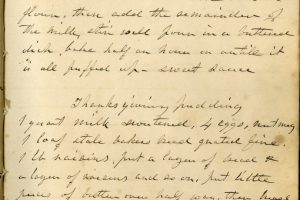 flour, then add the remainder of
the milk, stir well pour in a buttered
dish, bake half an hour or untill it
is all puffed up – sweet sauce
Thanksgiving pudding
1 quart milk sweetened, 4 eggs, nutmeg
1 loaf stale bakers bread grated fine
1 lb raisins, put a layer of bread &
a layer of raisins and so on, put little
pieces of butter over half way, then